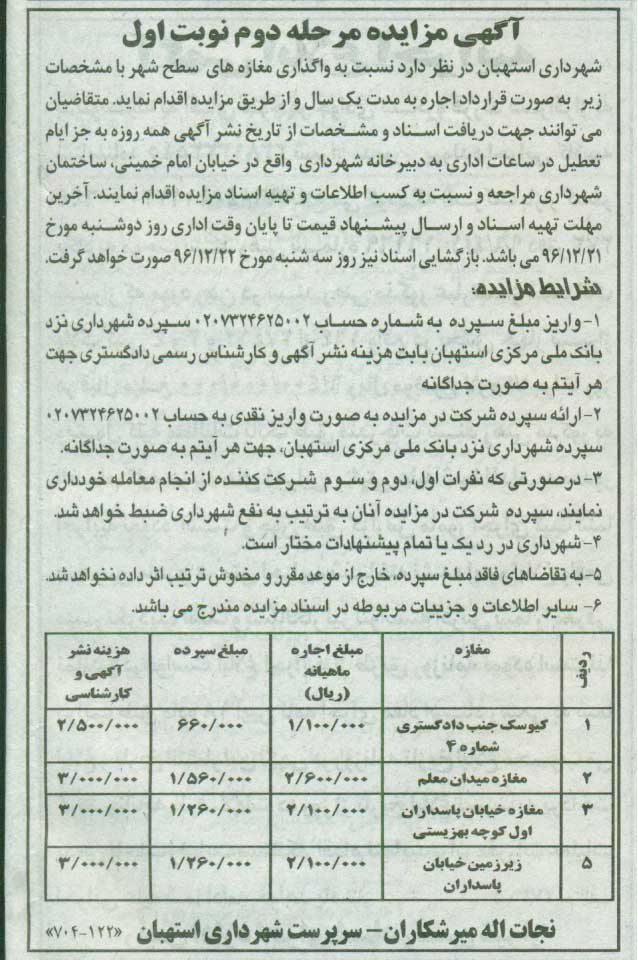 آگهی مزایده مرحله دوم نوبت اول
شهرداری استهبان در نظر دارد نسبت به واگذاری مغازه های سطح شهر با مشخصات
زیر به صورت قرارداد اجاره به مدت یک سال و از طریق مزایده اقدام نماید. متقاضیان
می توانند جهت دریافت اسناد و مشخصات از تاریخ نشر آگهی همه روزه به جز ایام
تعطیل در ساعات اداری به دبیرخانه شهرداری واقع در خیابان امام خمینی، ساختمان
شهرداری مراجعه و نسبت به کسب اطلاعات و تهیه اسناد مزایده اقدام نمایند. آخرین
مهلت تهیه اسناد و ارسال پیشنهاد قیمت تا پایان وقت اداری روز دوشنبه مورخ
۹۶/۱۲/۲۱ می باشد. بازگشایی اسناد نیز روز سه شنبه مورخ ۹۶/۱۲/۲۲ صورت خواهد گرفت.
شرایط مزایده:
۱- واریز مبلغ سپرده به شماره حساب ۰۲۰۷۳۲۴۶۲۵۰۰۲ سپرده شهرداری نزد
بانک ملی مرکزی استهبان بابت هزینه نشر آگهی و کارشناس رسمی دادگستری جهت
هر آیتم به صورت جداگانه
۲- ارائه سپرده شرکت در مزایده به صورت واریز نقدی به حساب ۰۲۰۷۳۲۴۶۲۵۰۰۲
سپرده شهرداری نزد بانک ملی مرکزی استهبان، جهت هر آیتم به صورت جداگانه.
۳- درصورتی که نفرات اول، دوم و سوم شرکت کننده از انجام معامله خودداری
نمایند، سپرده شرکت در مزایده آنان به ترتیب به نفع شهرداری ضبط خواهد شد.
۴- شهرداری در رد یک یا تمام پیشنهادات مختار است.
۵- به تقاضاهای فاقد مبلغ سپرده، خارج از موعد مقرر و مخدوش ترتیب اثر داده نخواهد شد.
۶- سایر اطلاعات و جزییات مربوطه در اسناد مزایده مندرج می باشد.
ردیف مغازه مبلغ اجاره ماهیانه (ریال) مبلغ سپرده هزینه نشر آگهی و کارشناسی
۱ کیوسک جنب دادگستری شماره ۴ ۱/۱۰۰/۰۰۰ ۶۶۰/۰۰۰ ۲/۵۰۰/۰۰۰
۲ مغازه میدان معلم ۲/۶۰۰/۰۰۰ ۱/۵۶۰/۰۰۰ ۳/۰۰۰/۰۰۰
۳ مغازه خیابان پاسداران اول کوچه بهزیستی ۲/۱۰۰/۰۰۰ ۱/۲۶۰/۰۰۰ ۳/۰۰۰/۰۰۰
۵ زیرزمین خیابان پاسداران ۲/۱۰۰/۰۰۰ ۱/۲۶۰/۰۰۰ ۳/۰۰۰/۰۰۰
نجات اله میرشکاران - سرپرست شهرداری استهبان «۷۰۴-۱۲۲»